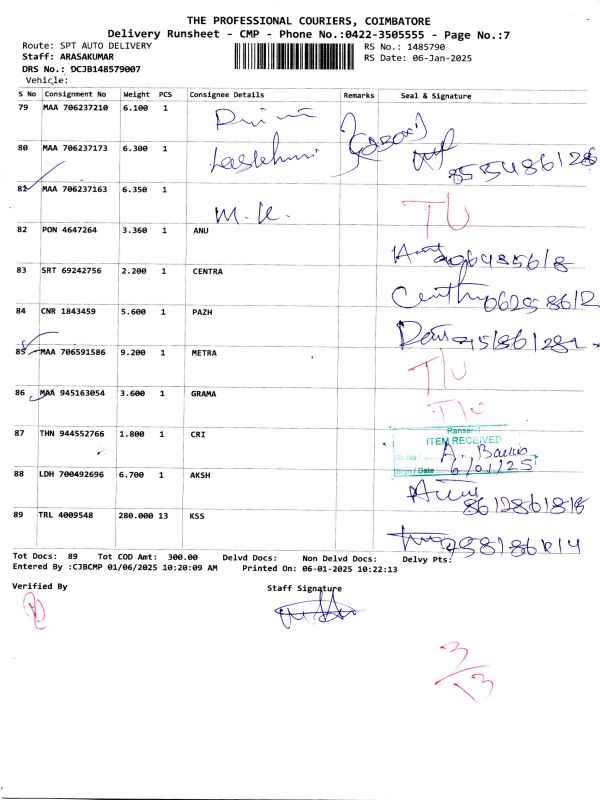 THE PROFESSIONAL COURIERS, COIMBATORE
Delivery Runsheet - CMP - Phone No.:0422-3505555 - Page No.:7
Route: SPT AUTO DELIVERY RS No.: 1485790
Staff: ARASAKUMAR RS Date: 06-Jan-2025
DRS No.: DCJB148579007
Vehicle:
S No Consignment No Weight PCS Consignee Details Remarks Seal & Signature
79 MAA 706237210 6.100 1
80 MAA 706237173 6.300 1
81 MAA 706237163 6.350 1 M.K. TU
82 PON 4647264 3.360 1 ANU
83 SRT 69242756 2.200 1 CENTRA
84 CNR 1843459 5.600 1 PAZH
85 MAA 706591586 9.200 1 METRA T/U
86 MAA 945163054 3.600 1 GRAMA T/U
87 THN 944552766 1.800 1 CRI
ITEM RECEIVED
Sign / Date 6/01/25
88 LDH 700492696 6.700 1 AKSH
89 TRL 4009548 280.000 13 KSS
Tot Docs: 89 Tot COD Amt: 300.00 Delvd Docs: Non Delvd Docs: Delvy Pts:
Entered By :CJBCMP 01/06/2025 10:20:09 AM Printed On: 06-01-2025 10:22:13
Verified By Staff Signature
3/13